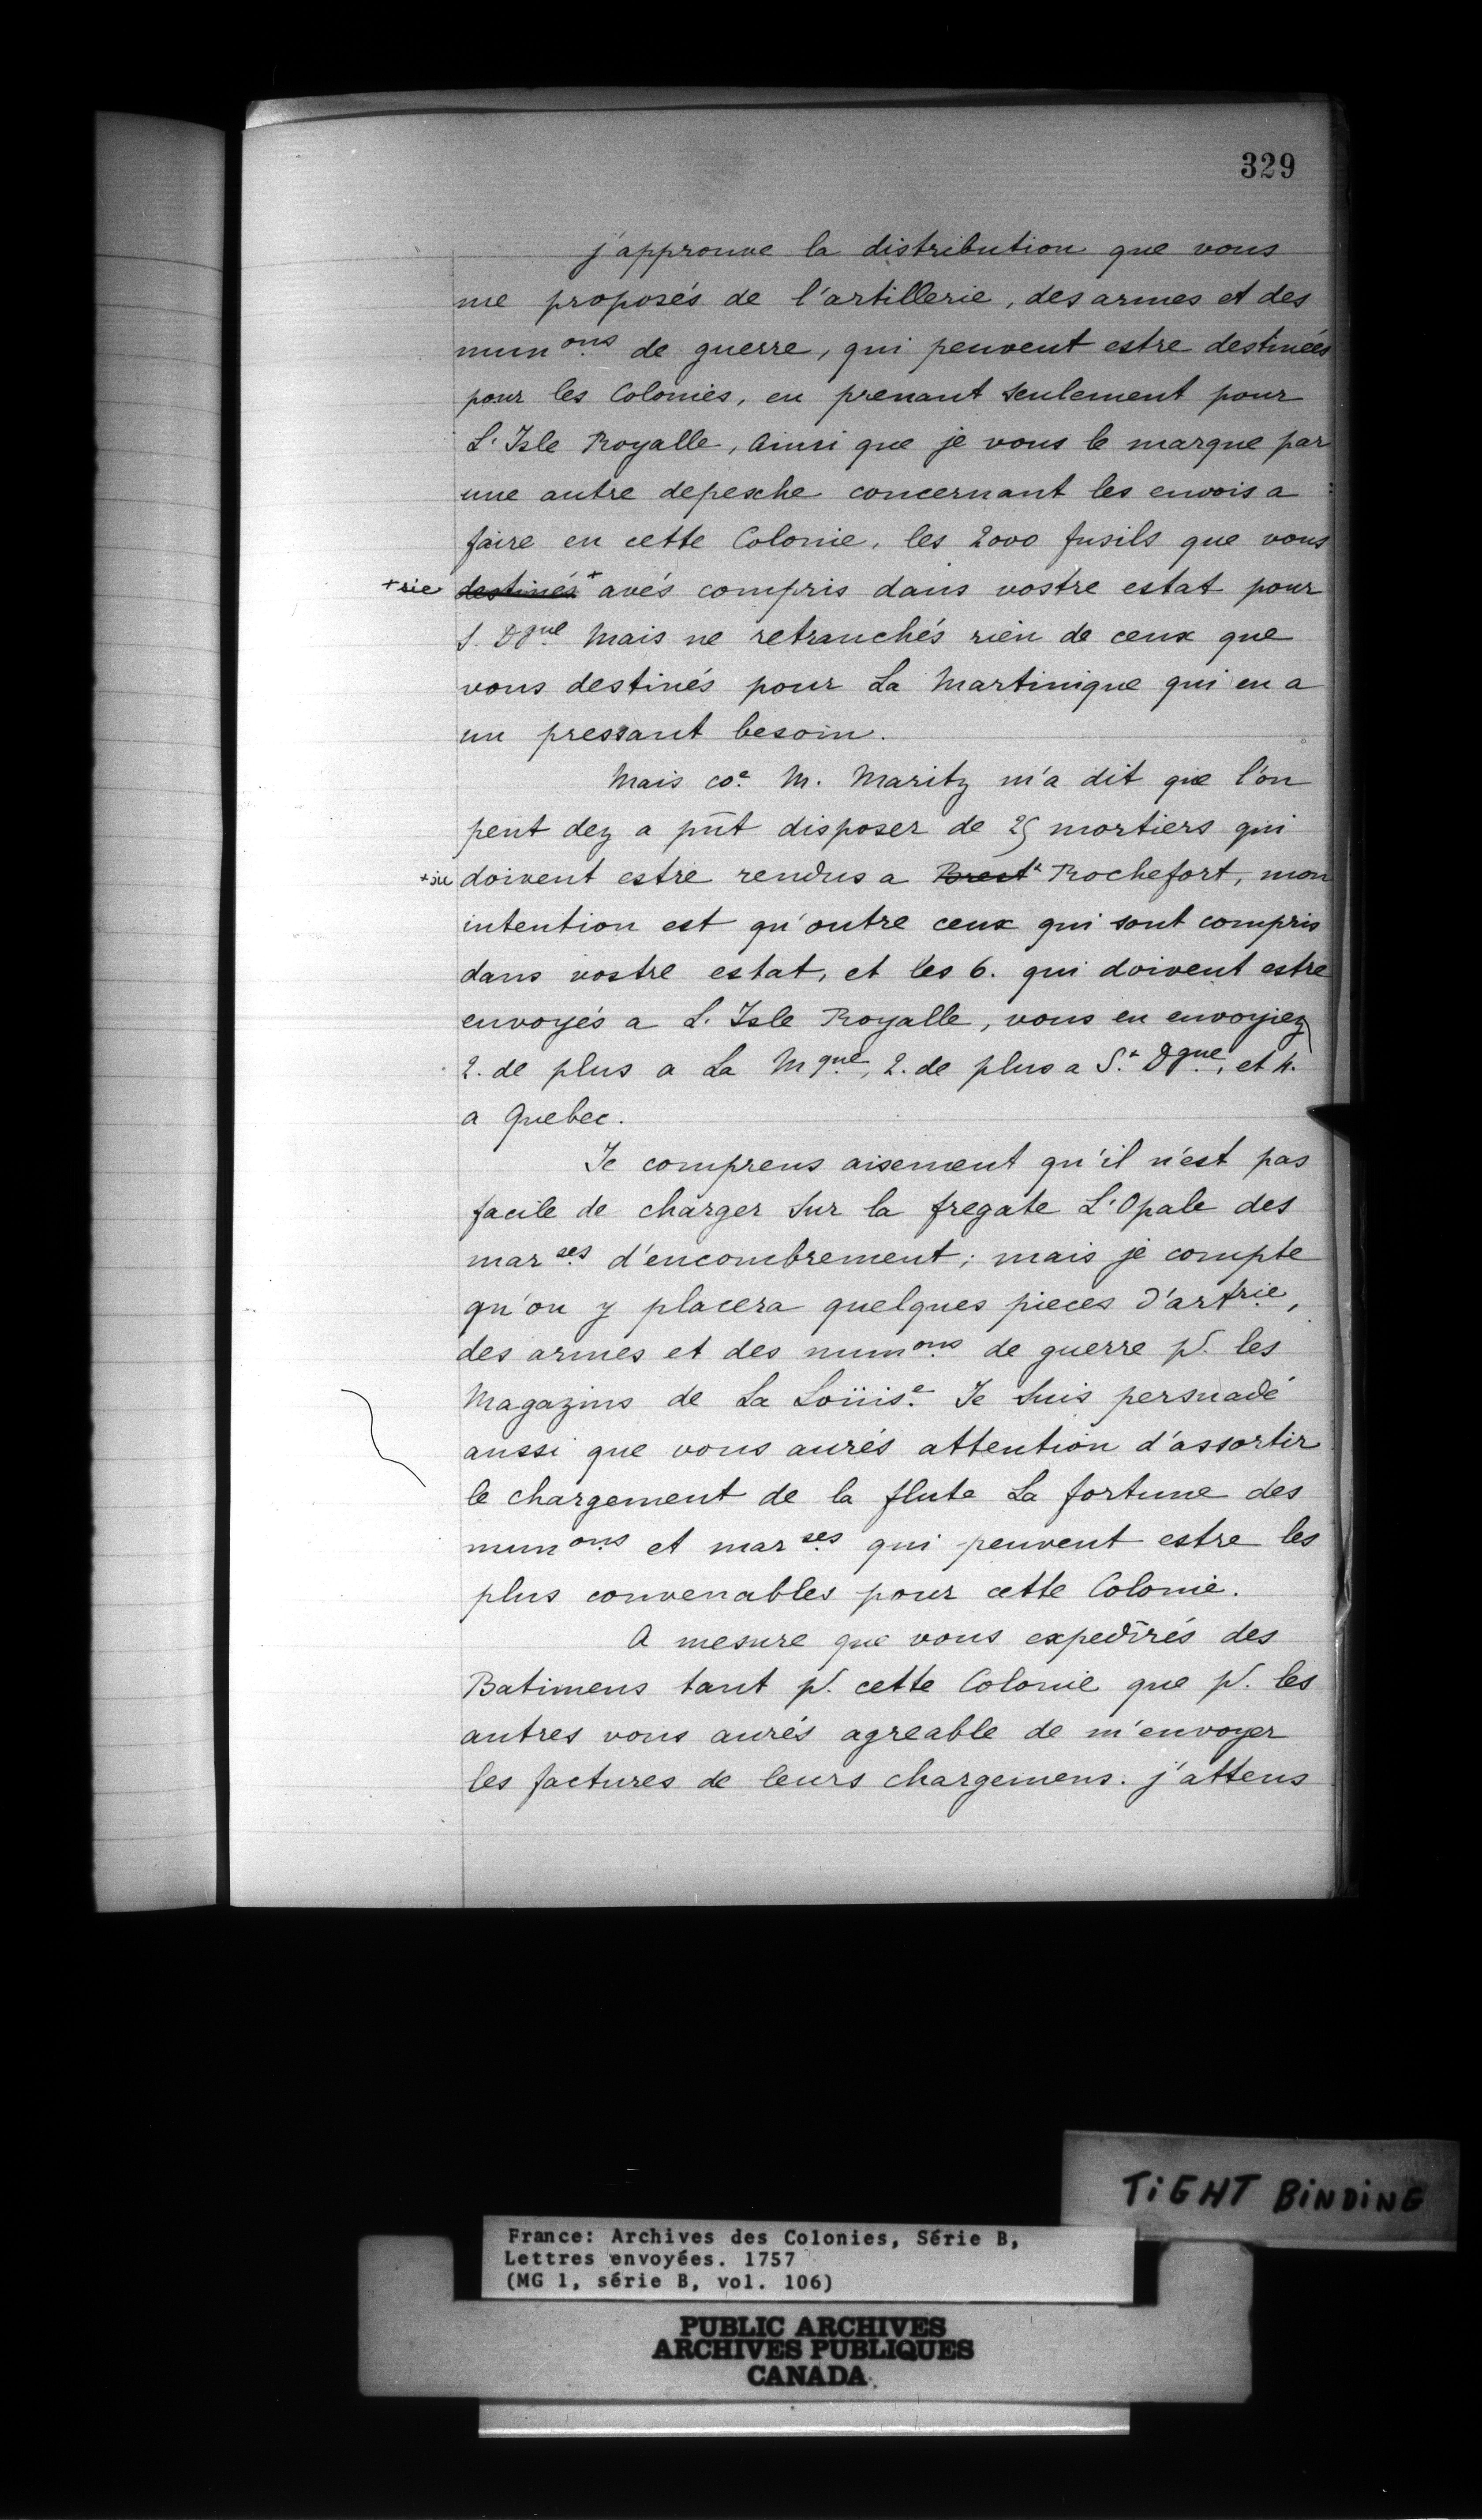 329
j'approuve la distribution que vous
me proposés de l'artillerie, des armes et des
mun ons de guerre, qui peuvent estre destinées
pour les Colonies, en prenant seulement pour
L'Isle Royalle, Ainsi que je vous le marque par
une autre depesche concernant les envois a
faire en cette Colonie, les 2000 fusils que vous
+sic destinés + avés compris dans vostre estat pour
S. Dgue Mais ne retranchés rien de ceux que
vous destinés pour La Martinique qui en a
un pressant besoin.
Mais coe M. Maritz m'a dit que l'on
peut dez a pñt disposer de 25 mortiers qui
+sic doivent estre rendus a Brest + Rochefort, mon
intention est qu'outre ceux qui sont compris
dans vostre estat, et les 6. qui doivent estre
envoyés a L'Isle Royalle, vous en envoyiez
2. de plus a La Mque, 2. de plus a St Dgue, et 4.
a Quebec.
Je comprens aisement qu'il n'est pas
facile de charger sur la fregate L'Opale des
mar ses d'encombrement; mais je compte
qu'on y placera quelques pieces d'artrie,
des armes et des mun ons de guerre pr. les
Magazins de La Loüise. Je suis persuadé
aussi que vous aurés attention d'assortir
le chargement de la flute La fortune des
mun ons et mar ses qui peuvent estre les
plus convenables pour cette Colonie.
A mesure que vous expedīrés des
Batimens tant pr. cette Colonie que pr. les
autres vous aurés agreable de m'envoyer
les factures de leurs chargemens. j'attens
TiGHT BiNDiNG
France: Archives des Colonies, Série B,
Lettres envoyées. 1757
(MG 1, série B, vol. 106)
PUBLIC ARCHIVES
ARCHIVES PUBLIQUES
CANADA